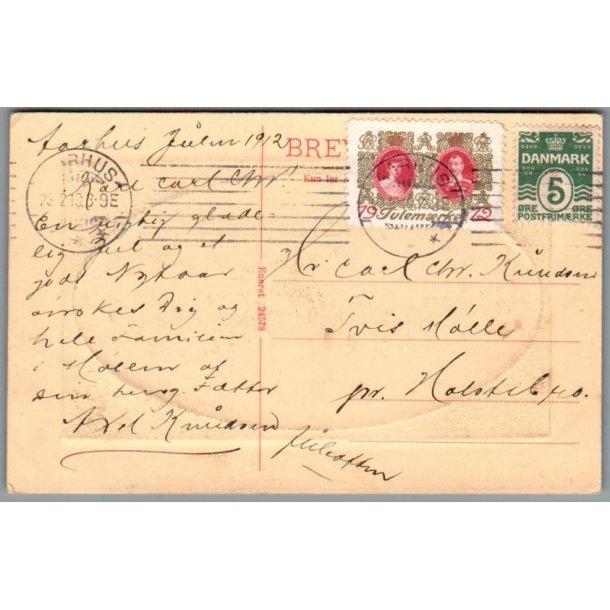 Aarhus Julen 1912
Kære Carl Chr!
En rigtig glæde-
lig Jul og et
godt Nytaar
ønskes Dig og
hele Familien
i Møllen af
din heng. Fætter
Axel Knudsen
BREV
Kun for
Eneret 24578
19 Julemærke 12
DANMARK
5
ØRE ØRE
POSTFRIMÆRKE
Hr Carl Chr. Knudsen
Tvis Mølle
pr. Holstebro.
Juleaften